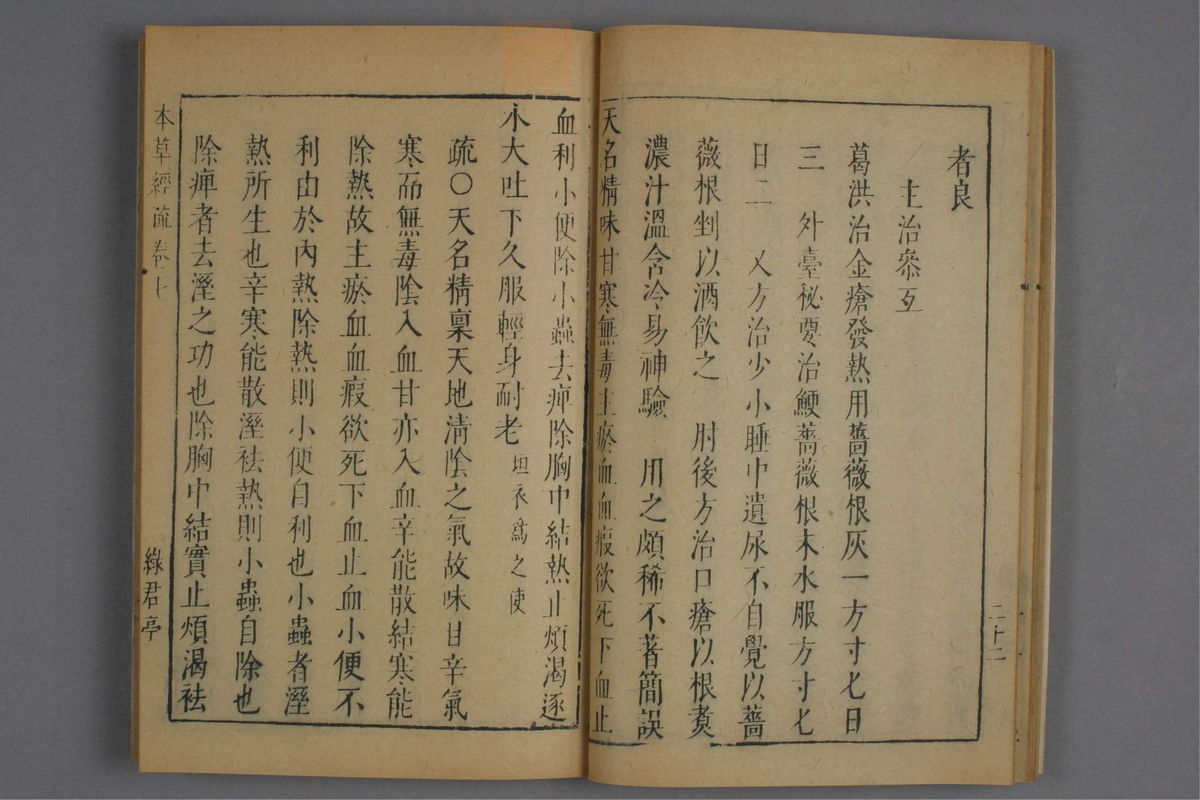 者良
主治參互
葛洪治金瘡發熱用薔薇根灰一方寸匕日
三　外臺秘要治鯁薔薇根末水服方寸匕
日三　又方治少小睡中遺尿不自覺以薔
薇根剉以酒飲之　肘後方治口瘡以根煑
濃汁溫含冷易神驗　用之頗稀不著簡誤
天名精味甘寒無毒主瘀血血瘕欲死下血止
血利小便除小蟲去痺除胸中結熱止煩渴逐
水大吐下久服輕身耐老垣衣爲之使
疏〇天名精稟天地清陰之氣故味甘辛氣
寒而無毒陰入血甘亦入血辛能散結寒能
除熱故主瘀血血瘕欲死下血止血小便不
利由於內熱除熱則小便自利也小蟲者溼
熱所生也辛寒能散溼祛熱則小蟲自除也
除痺者去溼之功也除胸中結實止煩渴祛
本草經疏卷七
綠君亭
二十二